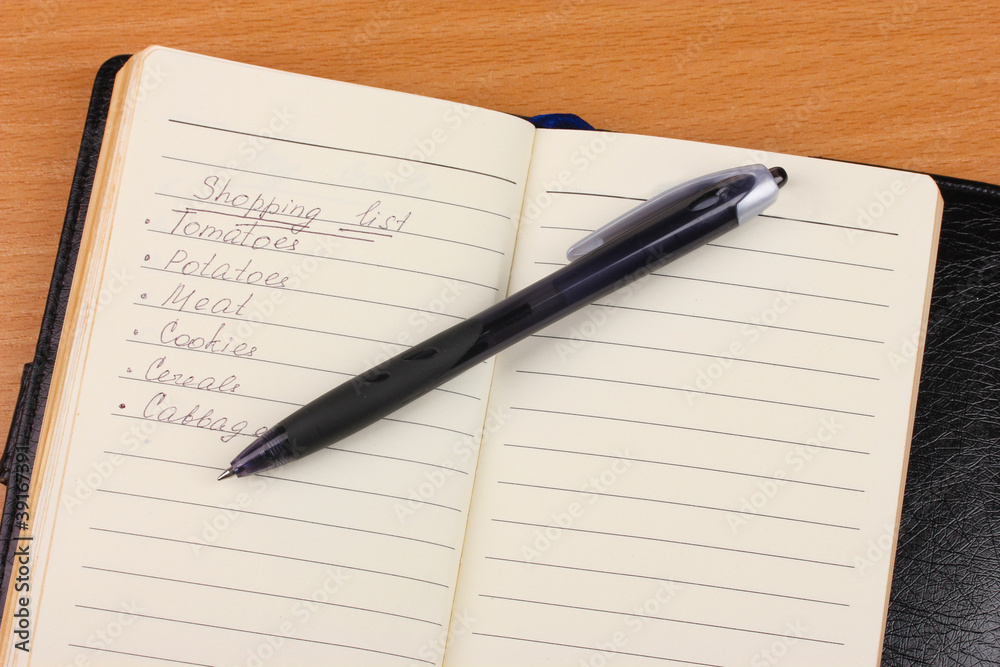 Shopping list
• Tomatoes
• Potatoes
• Meat
• Cookies
• Cereals
• Cabbage
Adobe Stock | #39167391